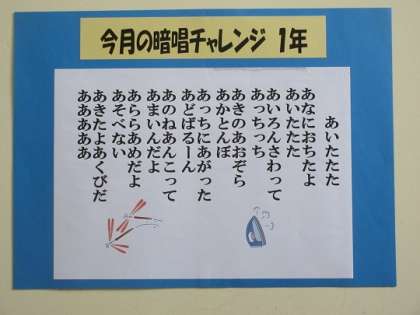 今月の暗唱チャレンジ 1年
あいたたた
あなにおちたよ
あいたたた
あいろんさわって
あっちっち
あきのあおぞら
あかとんぼ
あっちにあがった
あどばるーん
あのねあんこって
あまいんだよ
あららあめだよ
あそべない
あきたよあくびだ
あああああ